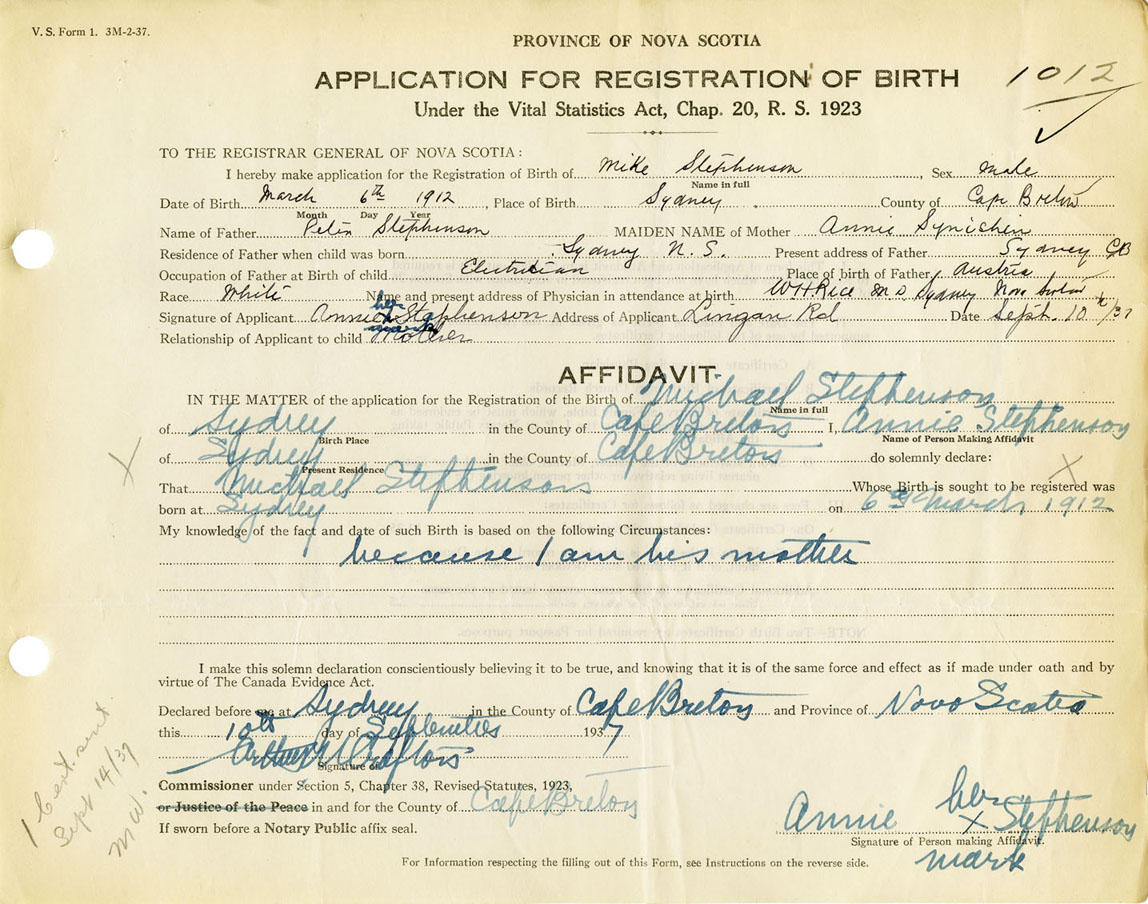 V. S. Form 1. 3M-2-37.
PROVINCE OF NOVA SCOTIA
APPLICATION FOR REGISTRATION OF BIRTH
1012
Under the Vital Statistics Act, Chap. 20, R. S. 1923
TO THE REGISTRAR GENERAL OF NOVA SCOTIA:
I hereby make application for the Registration of Birth of Mike Stephenson, Sex male
Name in full
Date of Birth March 6th 1912, Place of Birth Sydney County of Cape Breton
Month Day Year
Name of Father Peter Stephenson MAIDEN NAME of Mother Annie Synishin
Residence of Father when child was born Sydney N. S. Present address of Father Sydney CB
Occupation of Father at Birth of child Electrician Place of birth of Father Austria
Race White Name and present address of Physician in attendance at birth W H Rice M D Sydney Nova Scotia
her
Signature of Applicant Annie x Stephenson Address of Applicant Lingan Rd Date Sept. 10th/37
mark
Relationship of Applicant to child Mother
AFFIDAVIT
IN THE MATTER of the application for the Registration of the Birth of Michael Stephenson
Name in full
of Sydney in the County of Cape Breton I, Annie Stephenson
Birth Place Name of Person Making Affidavit
of Sydney in the County of Cape Breton do solemnly declare:
Present Residence
X
X
That Michael Stephenson Whose Birth is sought to be registered was
born at Sydney on 6th March 1912
My knowledge of the fact and date of such Birth is based on the following Circumstances:
because I am his mother
I make this solemn declaration conscientiously believing it to be true, and knowing that it is of the same force and effect as if made under oath and by
virtue of The Canada Evidence Act.
Declared before me at Sydney in the County of Cape Breton and Province of Nova Scotia
this 10th day of September 1937
Arthur
Signature of
Commissioner under Section 5, Chapter 38, Revised Statutes, 1923,
or Justice of the Peace in and for the County of Cape Breton
If sworn before a Notary Public affix seal.
her
Annie x Stephenson
Signature of Person making Affidavit.
mark
For Information respecting the filling out of this Form, see Instructions on the reverse side.
1 Cert. sent
Sept 14/37
M W.